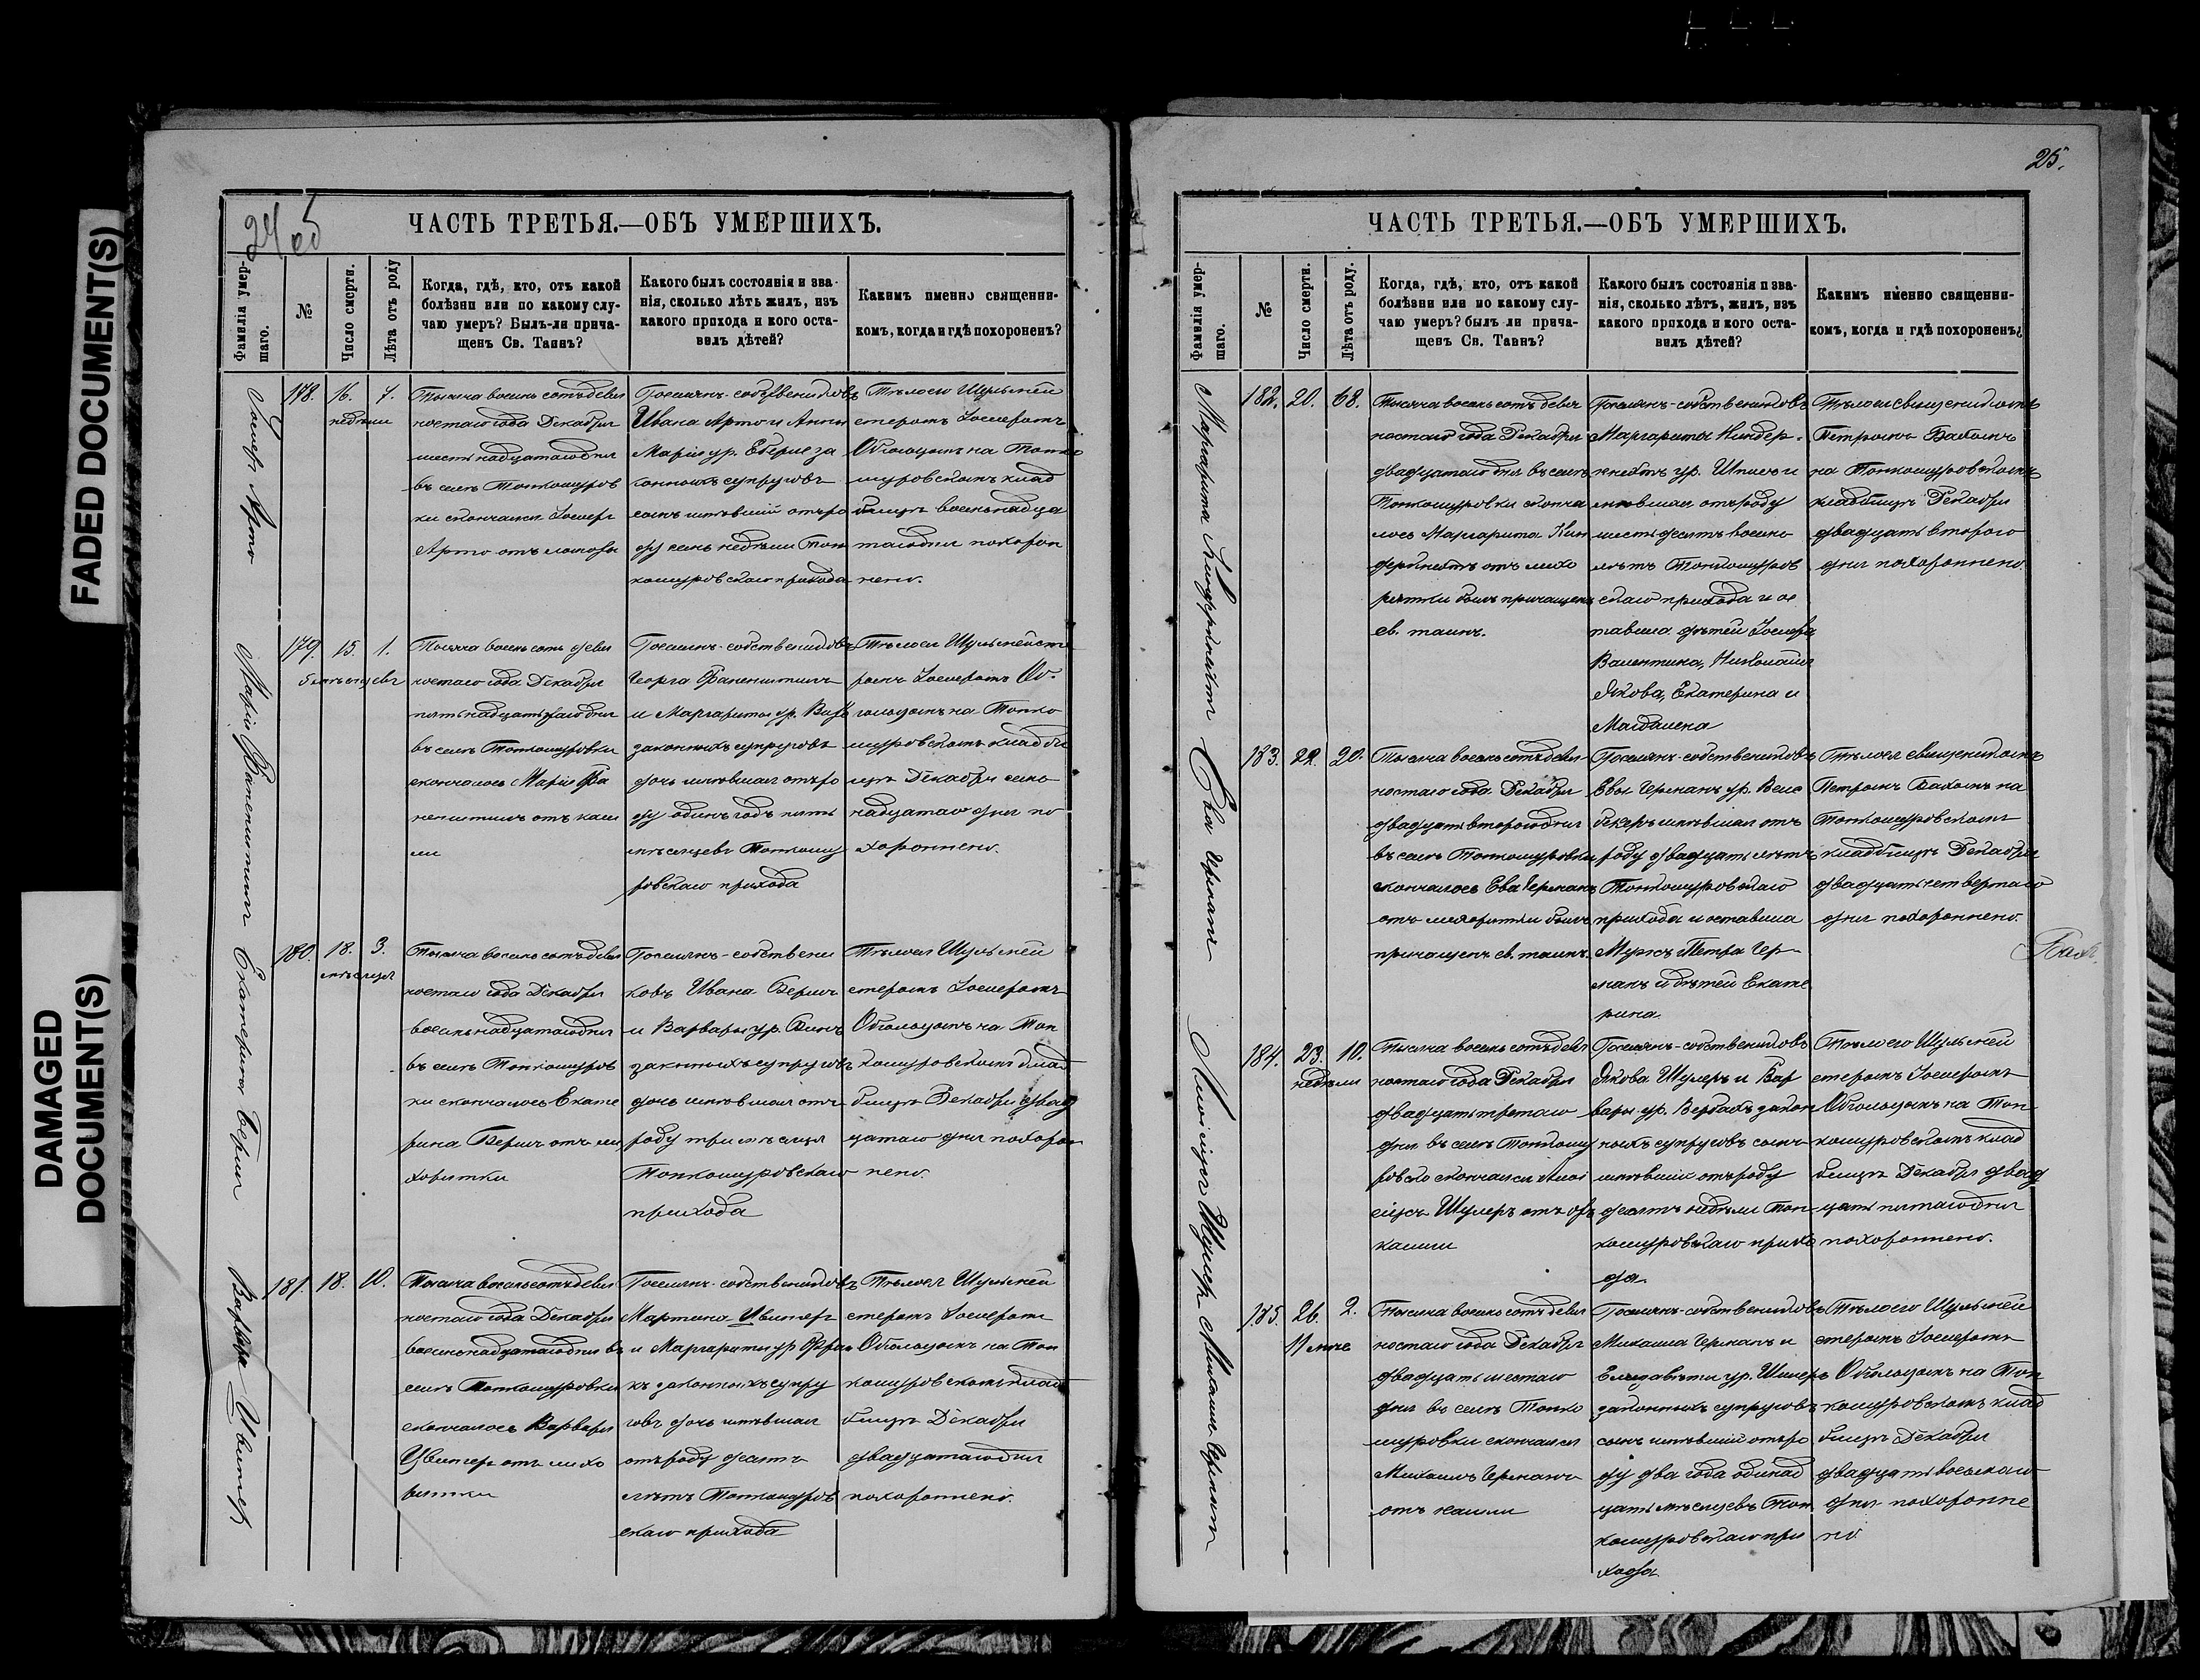 FADED DOCUMENT(S)
DAMAGED
DOCUMENT(S)
24 об
ЧАСТЬ ТРЕТЬЯ.—ОБЪ УМЕРШИХЪ.
Фамилія умер-
шаго.
№
Число смерти.
Лѣта отъ роду
Когда, гдѣ, кто, отъ какой
болѣзни или по какому слу-
чаю умеръ? Былъ-ли прича-
щенъ Св. Таинъ?
Какого былъ состоянія и зва-
нія, сколько лѣтъ жилъ, изъ
какого прихода и кого оста-
вилъ дѣтей?
Какимъ именно священни-
комъ, когда и гдѣ похороненъ?
Іосифъ Арто
178.
16.
7.
недѣли
Тысяча восемь сотъ девя
ностаго года Декабря
шестьнадцатаго дня
въ селѣ Тонкошуров
ки скончался Іосифъ
Арто отъ
Поселянъ-собственниковъ
Ивана Арто и Анны
Маріи ур. Еберле за
конныхъ супруговъ
сынъ имѣвшій отъ ро
ду семь недѣли Тон
кошуровскаго прихода
Тѣло его Шульмей
стеромъ Іосифомъ
Обгольцомъ на Тонко
шуровскомъ клад
бищѣ восемьнадца
таго дня похорон
нено.
Марія Фаненштиль
179.
15.
1.
5 мѣсяцевъ
Тысяча восемь сотъ девя
ностаго года Декабря
пятьнадцатаго дня
въ селѣ Тонкошуровки
скончалось Марія Фа
ненштиль отъ каш
ли
Поселянъ-собственниковъ
Георга Фаненштиль
и Маргариты ур.
законныхъ супруговъ
дочь имѣвшая отъ ро
ду одинъ годъ пять
мѣсяцевъ Тонкошу
ровскаго прихода
Тѣло ея Шульмейсте
ромъ Іосифомъ Об-
гольцомъ на Тонко
шуровскомъ кладби
щѣ Декабря семь
надцатаго дня по
хороннено.
Екатерина Берш
180.
18.
3.
мѣсяца
Тысяча восемь сотъ девя
ностаго года Декабря
восемьнадцатаго дня
въ селѣ Тонкошуров
ки скончалось Екате
рина Берш отъ ли
хоритки
Поселянъ-собственни
ковъ Ивана Берш
и Варвары ур.
законныхъ супруговъ
дочь имѣвшая отъ
роду три мѣсяца
Тонкошуровскаго
прихода
Тѣло ея Шульмей
стеромъ Іосифомъ
Обгольцомъ на Тон
кошуровскомъ клад
бищѣ Декабря двад
цатаго дня похорон
нено.
Варвара Цвингеръ
181.
18.
10.
Тысяча восемь сотъ девя
ностаго года Декабря
восемьнадцатаго дня въ
селѣ Тонкошуровки
скончалось Варвара
Цвингеръ отъ лихо
ритки
Поселянъ-собственниковъ
Мартина Цвингеръ
и Маргариты ур Фран
къ законныхъ супру
говъ дочь имѣвшая
отъ роду десять
лѣтъ Тонкошуров
скаго прихода
Тѣло ея Шульмей
стеромъ Іосифомъ
Обгольцомъ на Тон
кошуровскомъ клад
бищѣ Декабря
двадцатаго дня
похороннено.
25.
ЧАСТЬ ТРЕТЬЯ.—ОБЪ УМЕРШИХЪ.
Фамилія умер-
шаго.
№
Число смерти.
Лѣта отъ роду.
Когда, гдѣ, кто, отъ какой
болѣзни или по какому слу-
чаю умеръ? былъ ли прича-
щенъ Св. Таинъ?
Какого былъ состоянія и зва-
нія, сколько лѣтъ, жилъ, изъ
какого прихода и кого оста-
вилъ дѣтей?
Какимъ именно священни-
комъ, когда и гдѣ похороненъ?
Маргарита Киндеркнехтъ
182.
20.
68.
Тысяча восемь сотъ девя
ностаго года Декабря
двадцатаго дня въ селѣ
Тонкошуровки сконча
лось Маргарита Кин
деркнехтъ отъ лихо
ритки былъ причащенъ
св. таинъ.
Поселянъ-собственниковъ
Маргарита Киндер-
кнехтъ ур. и
мѣвшая отъ роду
шестьдесятъ восемь
лѣтъ Тонкошуров
скаго прихода и ос
тавила дѣтей Іосифа
Валентина, Николая
Якова, Екатерина и
Магдалена
Тѣло ея священикомъ
Петромъ Бахомъ
на Тонкошуровскомъ
кладбищѣ Декабря
двадцать второго
дня похороннено.
Ева Германъ
183.
22.
20.
Тысяча восемь сотъ девя
ностаго года Декабря
двадцать второго дня
въ селѣ Тонкошуровки
скончалось Ева Германъ
отъ лихоритки былъ
причащенъ св. таинъ.
Поселянъ-собственниковъ
Евы Германъ ур. Вейс
бекеръ имѣвшая отъ
роду двадцать лѣтъ
Тонкошуровскаго
прихода и оставила
Мужъ Петра Гер-
манъ и дѣтей Екате
рина.
Тѣло ея священикомъ
Петромъ Бахомъ на
Тонкошуровскомъ
кладбищѣ Декабря
двадцать четвертаго
дня похороннено.
Бахъ.
Алоісіусъ Шулеръ
184.
23.
10.
недѣли
Тысяча восемь сотъ девя
ностаго года Декабря
двадцать третьяго
дня въ селѣ Тонкошу
ровкѣ скончался Алоі
сіусъ Шулеръ отъ
кашли
Поселянъ-собственниковъ
Якова Шулеръ и Вар
вары ур. закон
ныхъ супруговъ сынъ
имѣвшій отъ роду
десять недѣли Тон
кошуровскаго прихо
да.
Тѣло его Шульмей
стеромъ Іосифомъ
Обгольцомъ на Тон
кошуровскомъ клад
бищѣ Декабря двад
цать пятаго дня
похороннено.
Михаилъ Германъ
185.
26.
2.
11 мѣс
Тысяча восемь сотъ девя
ностаго года Декабря
двадцать шестаго
дня въ селѣ Тонко
шуровки скончался
Михаилъ Германъ
отъ кашли
Поселянъ-собственниковъ
Михаила Германъ и
Елизаветы ур.
законныхъ супруговъ
сынъ имѣвшій отъ ро
ду два года одинад
цать мѣсяцевъ Тон
кошуровскаго при
хода
Тѣло его Шульмей
стеромъ Іосифомъ
Обгольцомъ на Тон
кошуровскомъ клад
бищѣ Декабря
двадцать восьмаго
дня похоронне
но